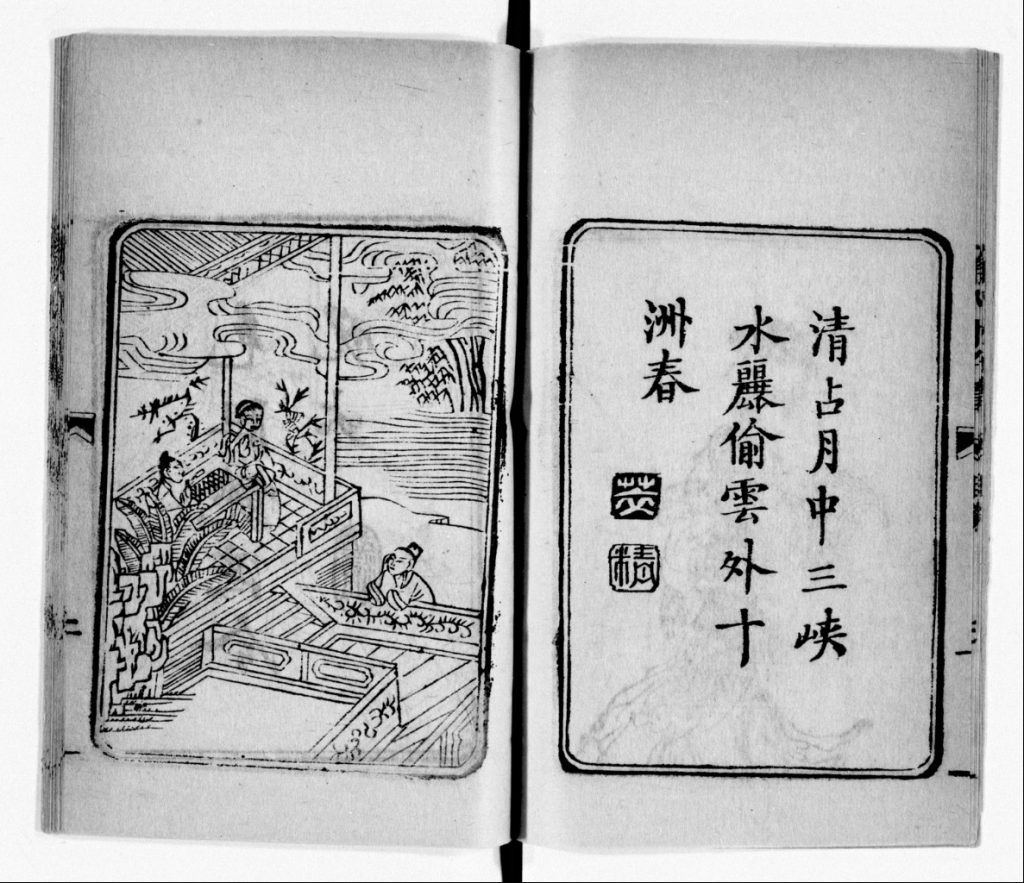 清占月中三峽
水麗偷雲外十
洲春